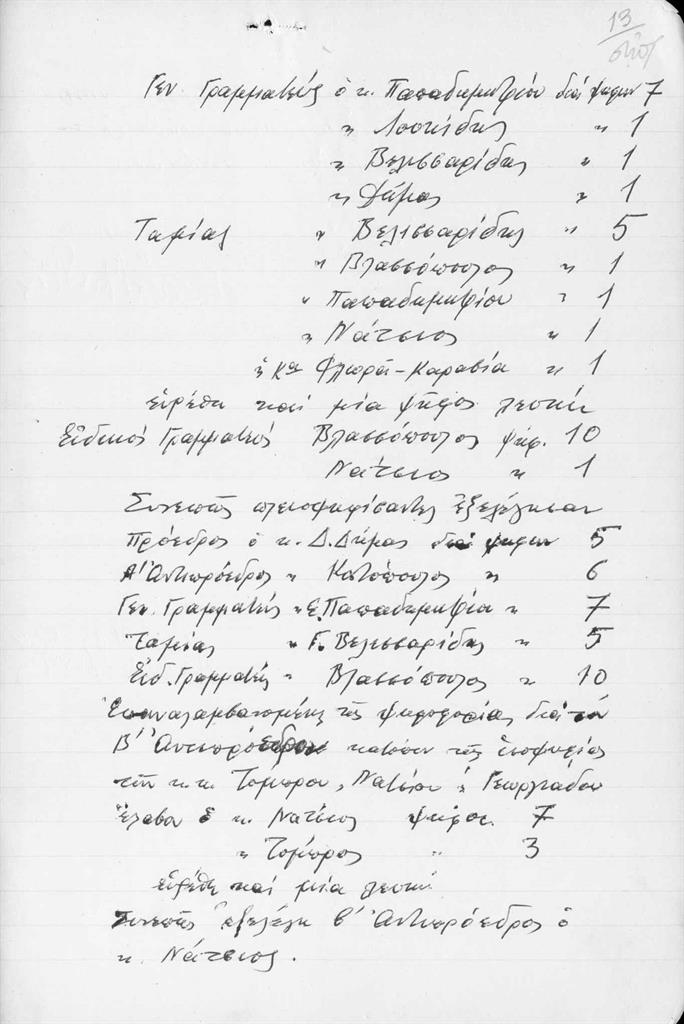 13
Γεν Γραμματεύς ὁ κ. Παπαδημητρίου διά ψήφων 7
" Λοσκίδης " 1
" Βελισσαρίδης " 1
" Δήμας " 1
Ταμίας " Βελισσαρίδης " 5
" Βλασσόπουλος " 1
" Παπαδημητρίου " 1
" Νάτσιος " 1
ἡ Κα Φλωρᾶ-Καραβία " 1
εὑρέθη καί μία ψῆφος λευκή
Εἰδικός Γραμματεύς Βλασσόπουλος ψήφ. 10
Νάτσιος " 1
Συνεπῶς πλειοψηφίσαντες ἐξελέγησαν
Πρόεδρος ὁ κ. Δ. Δήμας διά ψήφων 5
Α' Ἀντιπρόεδρος " Κωτόπουλος " 6
Γεν. Γραμματεύς " Ε. Παπαδημητρίου " 7
Ταμίας " Γ. Βελισσαρίδης " 5
Εἰδ. Γραμματεύς " Βλασσόπουλος " 10
Ἐπαναλαμβανομένης τῆς ψηφοφορίας διά τόν
Β' Ἀντιπρόεδρον κατόπιν τῆς ἰσοψηφίας
τῶν κ.κ. Τόμπρου, Νατσίου & Γεωργιάδου
ἔλαβον ὁ κ. Νάτσιος ψήφους 7
" Τόμπρος " 3
εὑρέθη καί μία λευκή
Συνεπῶς ἐξελέγη β' Ἀντιπρόεδρος ὁ
κ. Νάτσιος.